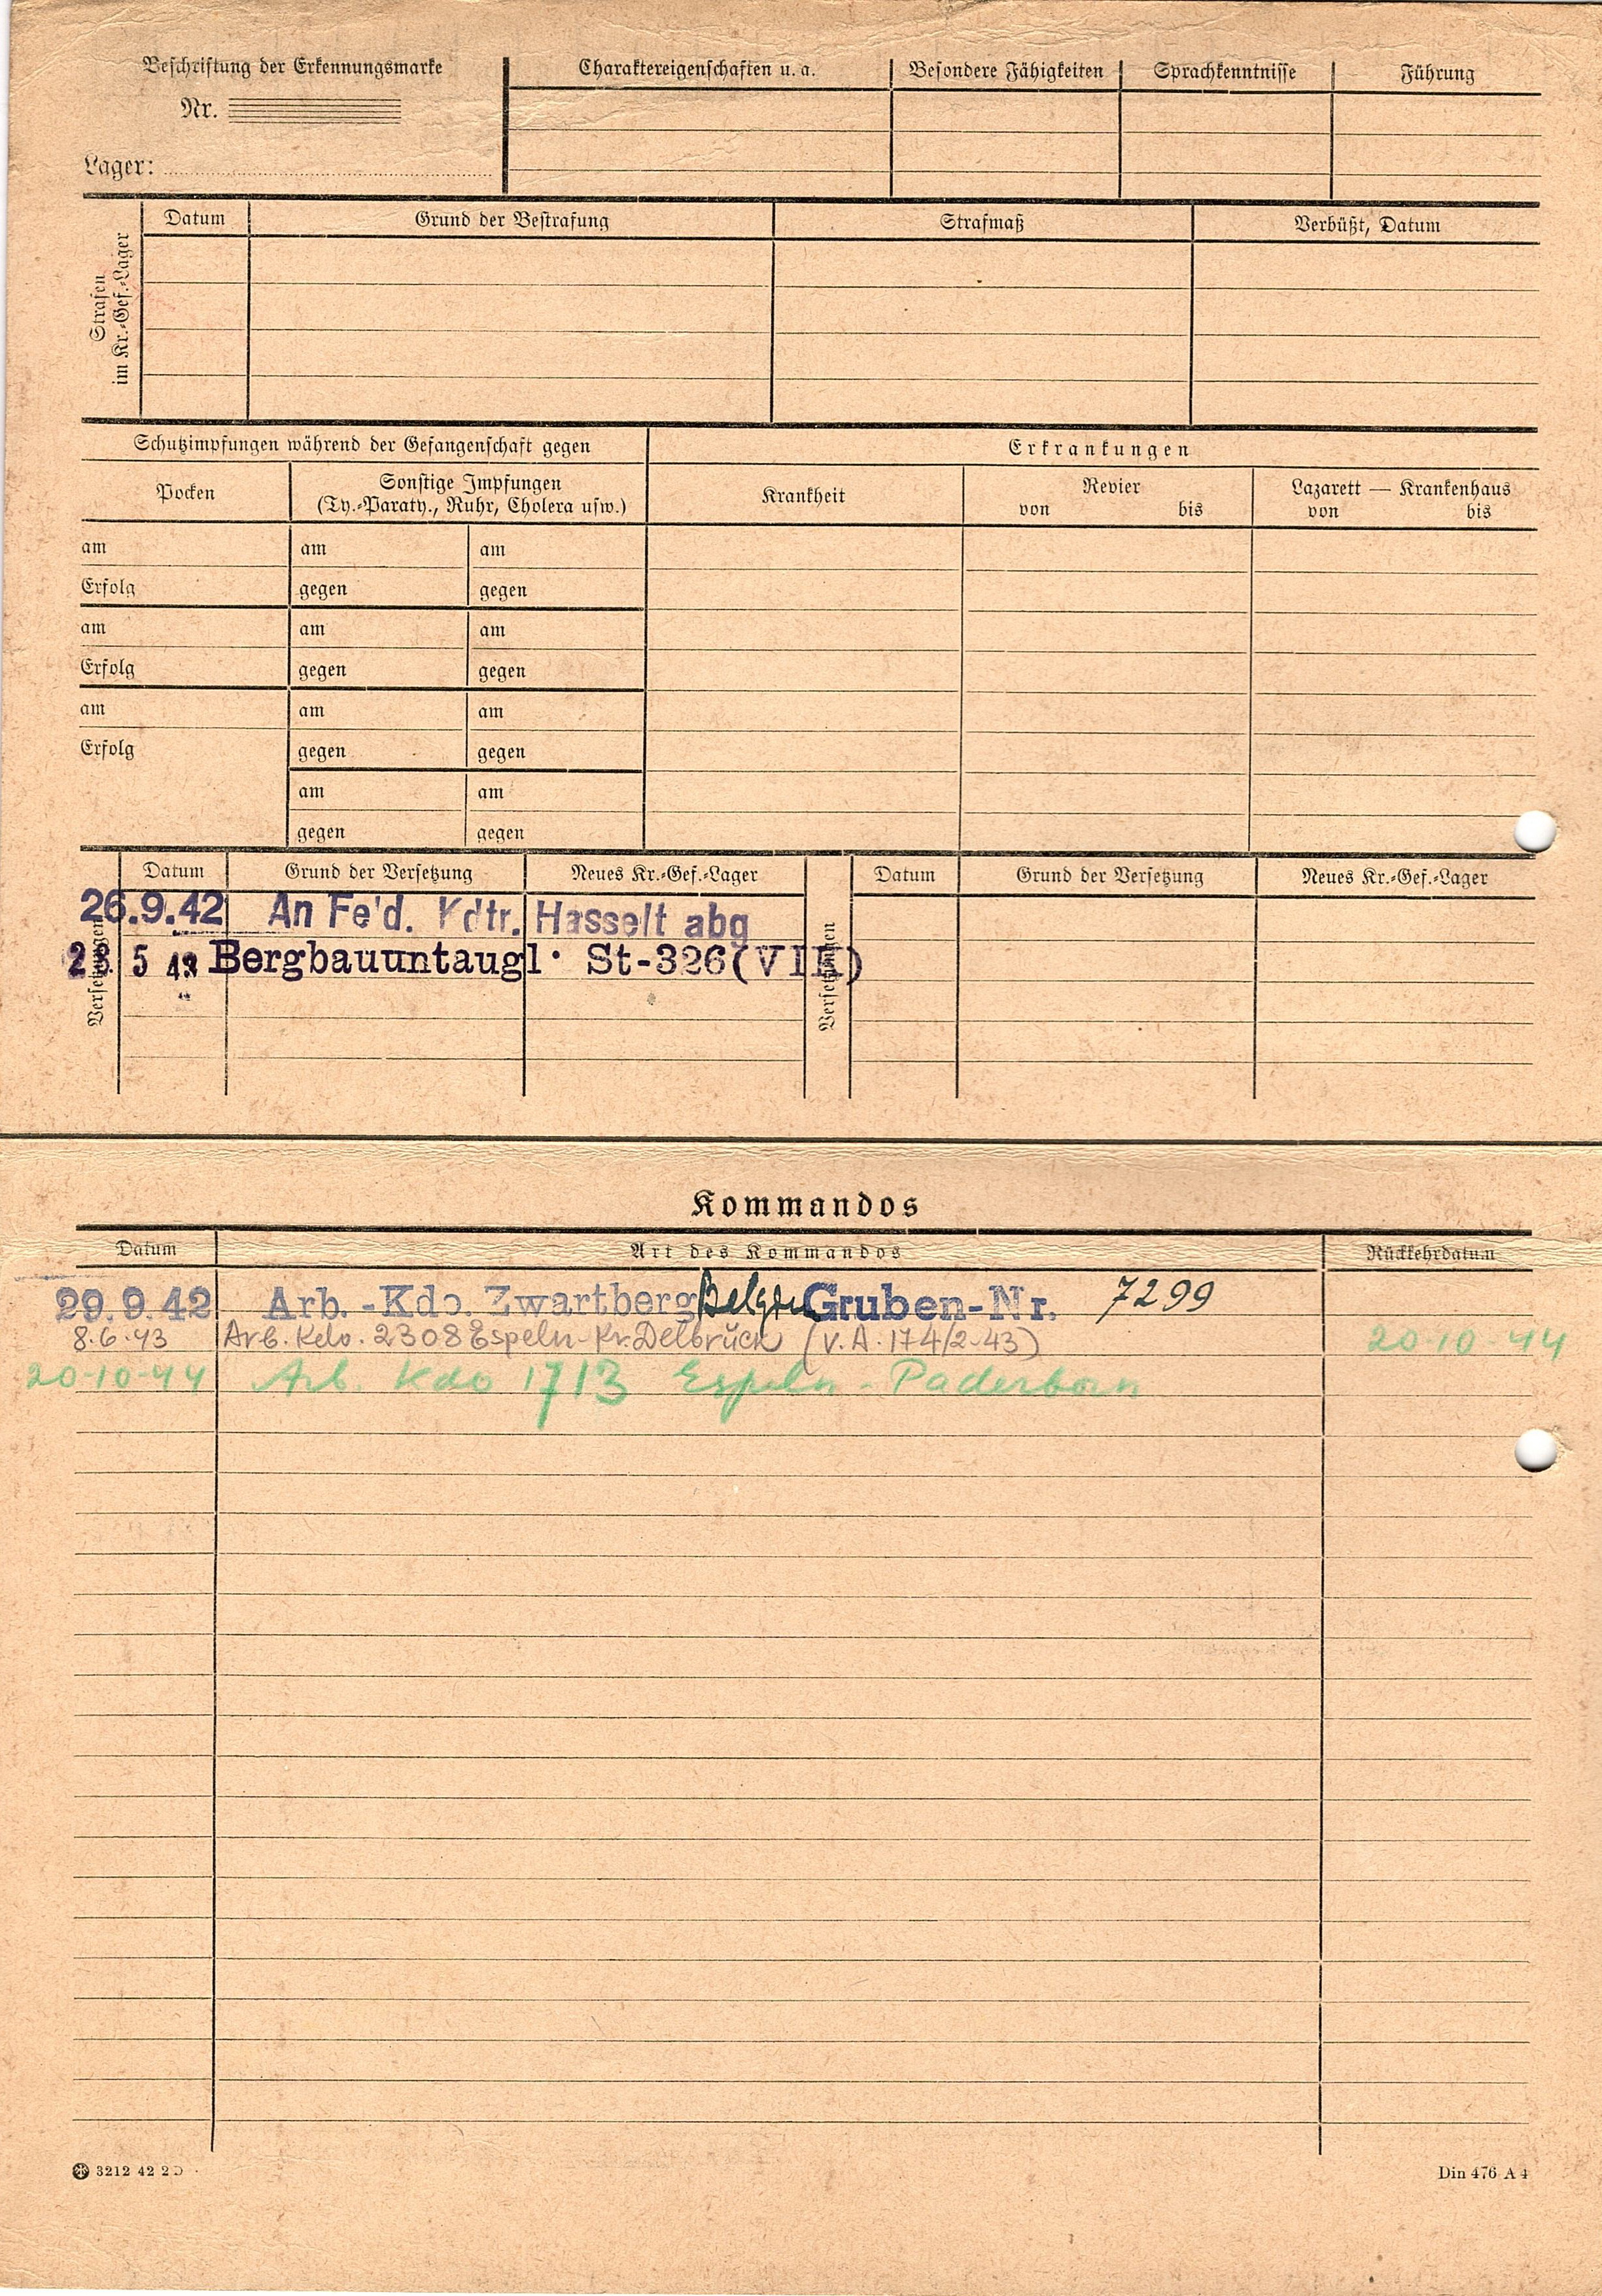 Beschriftung der Erkennungsmarke
Nr.
Lager:
Charaktereigenschaften u. a.
Besondere Fähigkeiten
Sprachkenntnisse
Führung
Strafen
im Kr.-Gef.-Lager
Datum
Grund der Bestrafung
Strafmaß
Verbüßt, Datum
Schutzimpfungen während der Gefangenschaft gegen
Erkrankungen
Pocken
Sonstige Impfungen
(Ty.-Paraty., Ruhr, Cholera usw.)
Krankheit
Revier
von bis
Lazarett — Krankenhaus
von bis
am am am
Erfolg gegen gegen
am am am
Erfolg gegen gegen
am am am
Erfolg gegen gegen
am am
gegen gegen
Versetzungen
Datum Grund der Versetzung Neues Kr.-Gef.-Lager
Versetzungen
Datum Grund der Versetzung Neues Kr.-Gef.-Lager
26.9.42 An Fe'd. Kdtr. Hasselt abg
28. 5 43 Bergbauuntaugl. St-326(VIK)
Kommandos
Datum Art des Kommandos Rückkehrdatum
29.9.42 Arb.-Kdo. Zwartberg Belgien Gruben-Nr. 7299
8.6.43 Arb. Kdo. 2308 Espeln-Kr. Delbrück (V.A. 174/2-43) 20-10-44
20-10-44 Arb. Kdo 1713 Espeln - Paderborn
3212 42 2D
Din 476 A 4